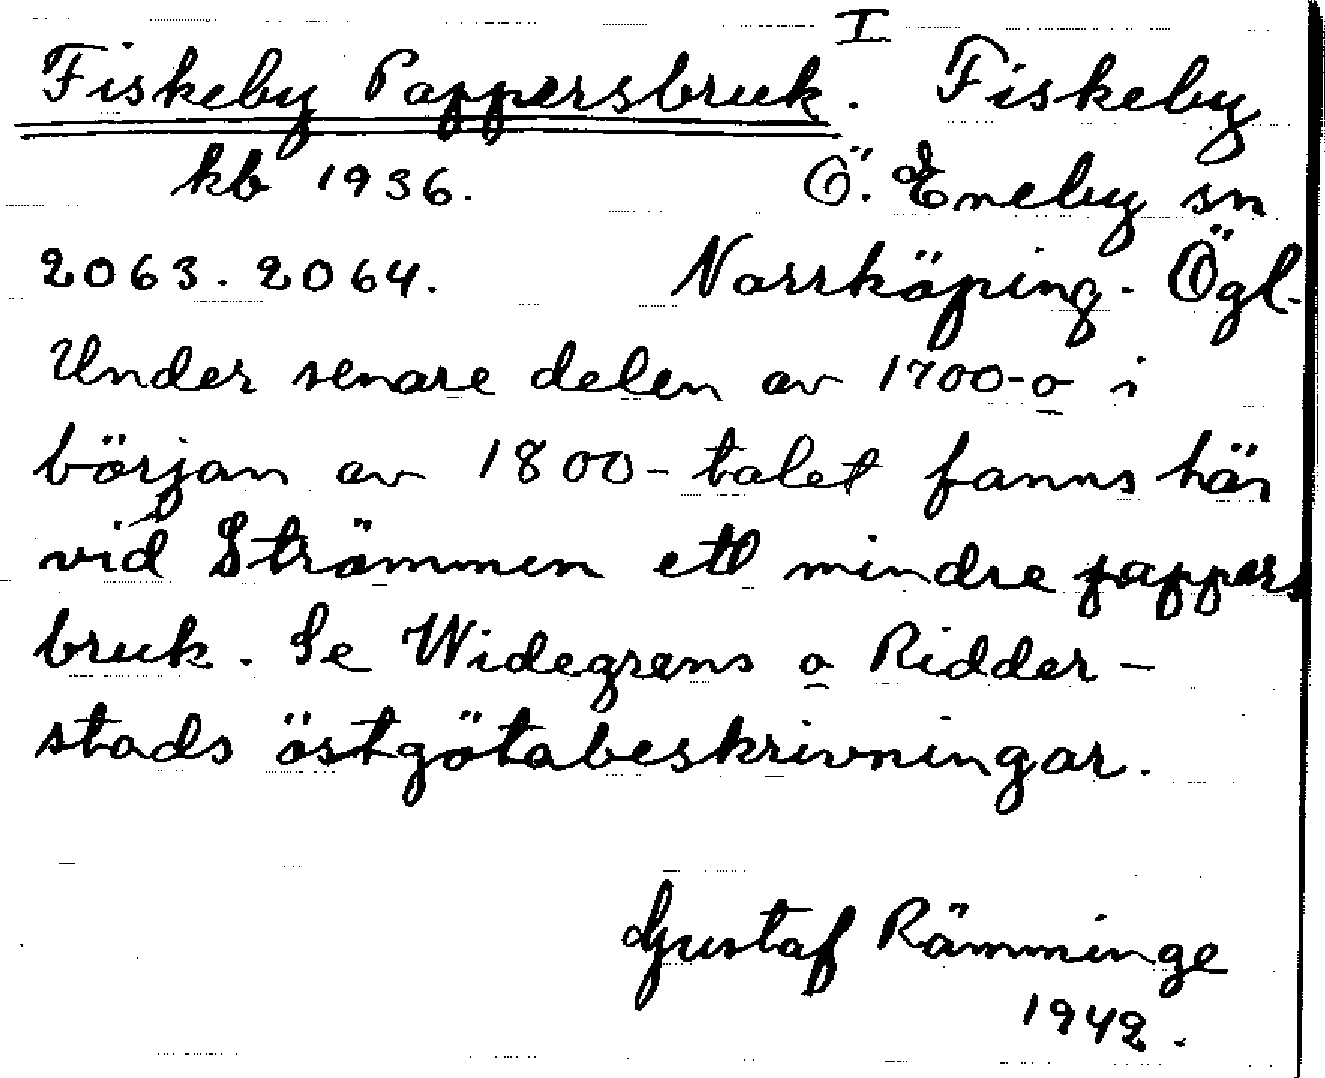 I
Fiskeby Pappersbruk. Fiskeby
kb 1936. Ö. Eneby sn
2063. 2064. Norrköping. Ögl.
Under senare delen av 1700- o i
början av 1800-talet fanns här
vid Strömmen ett mindre pappers
bruk. Se Widegrens o Ridder-
stads östgötabeskrivningar.
Gustaf Rämminge
1942.